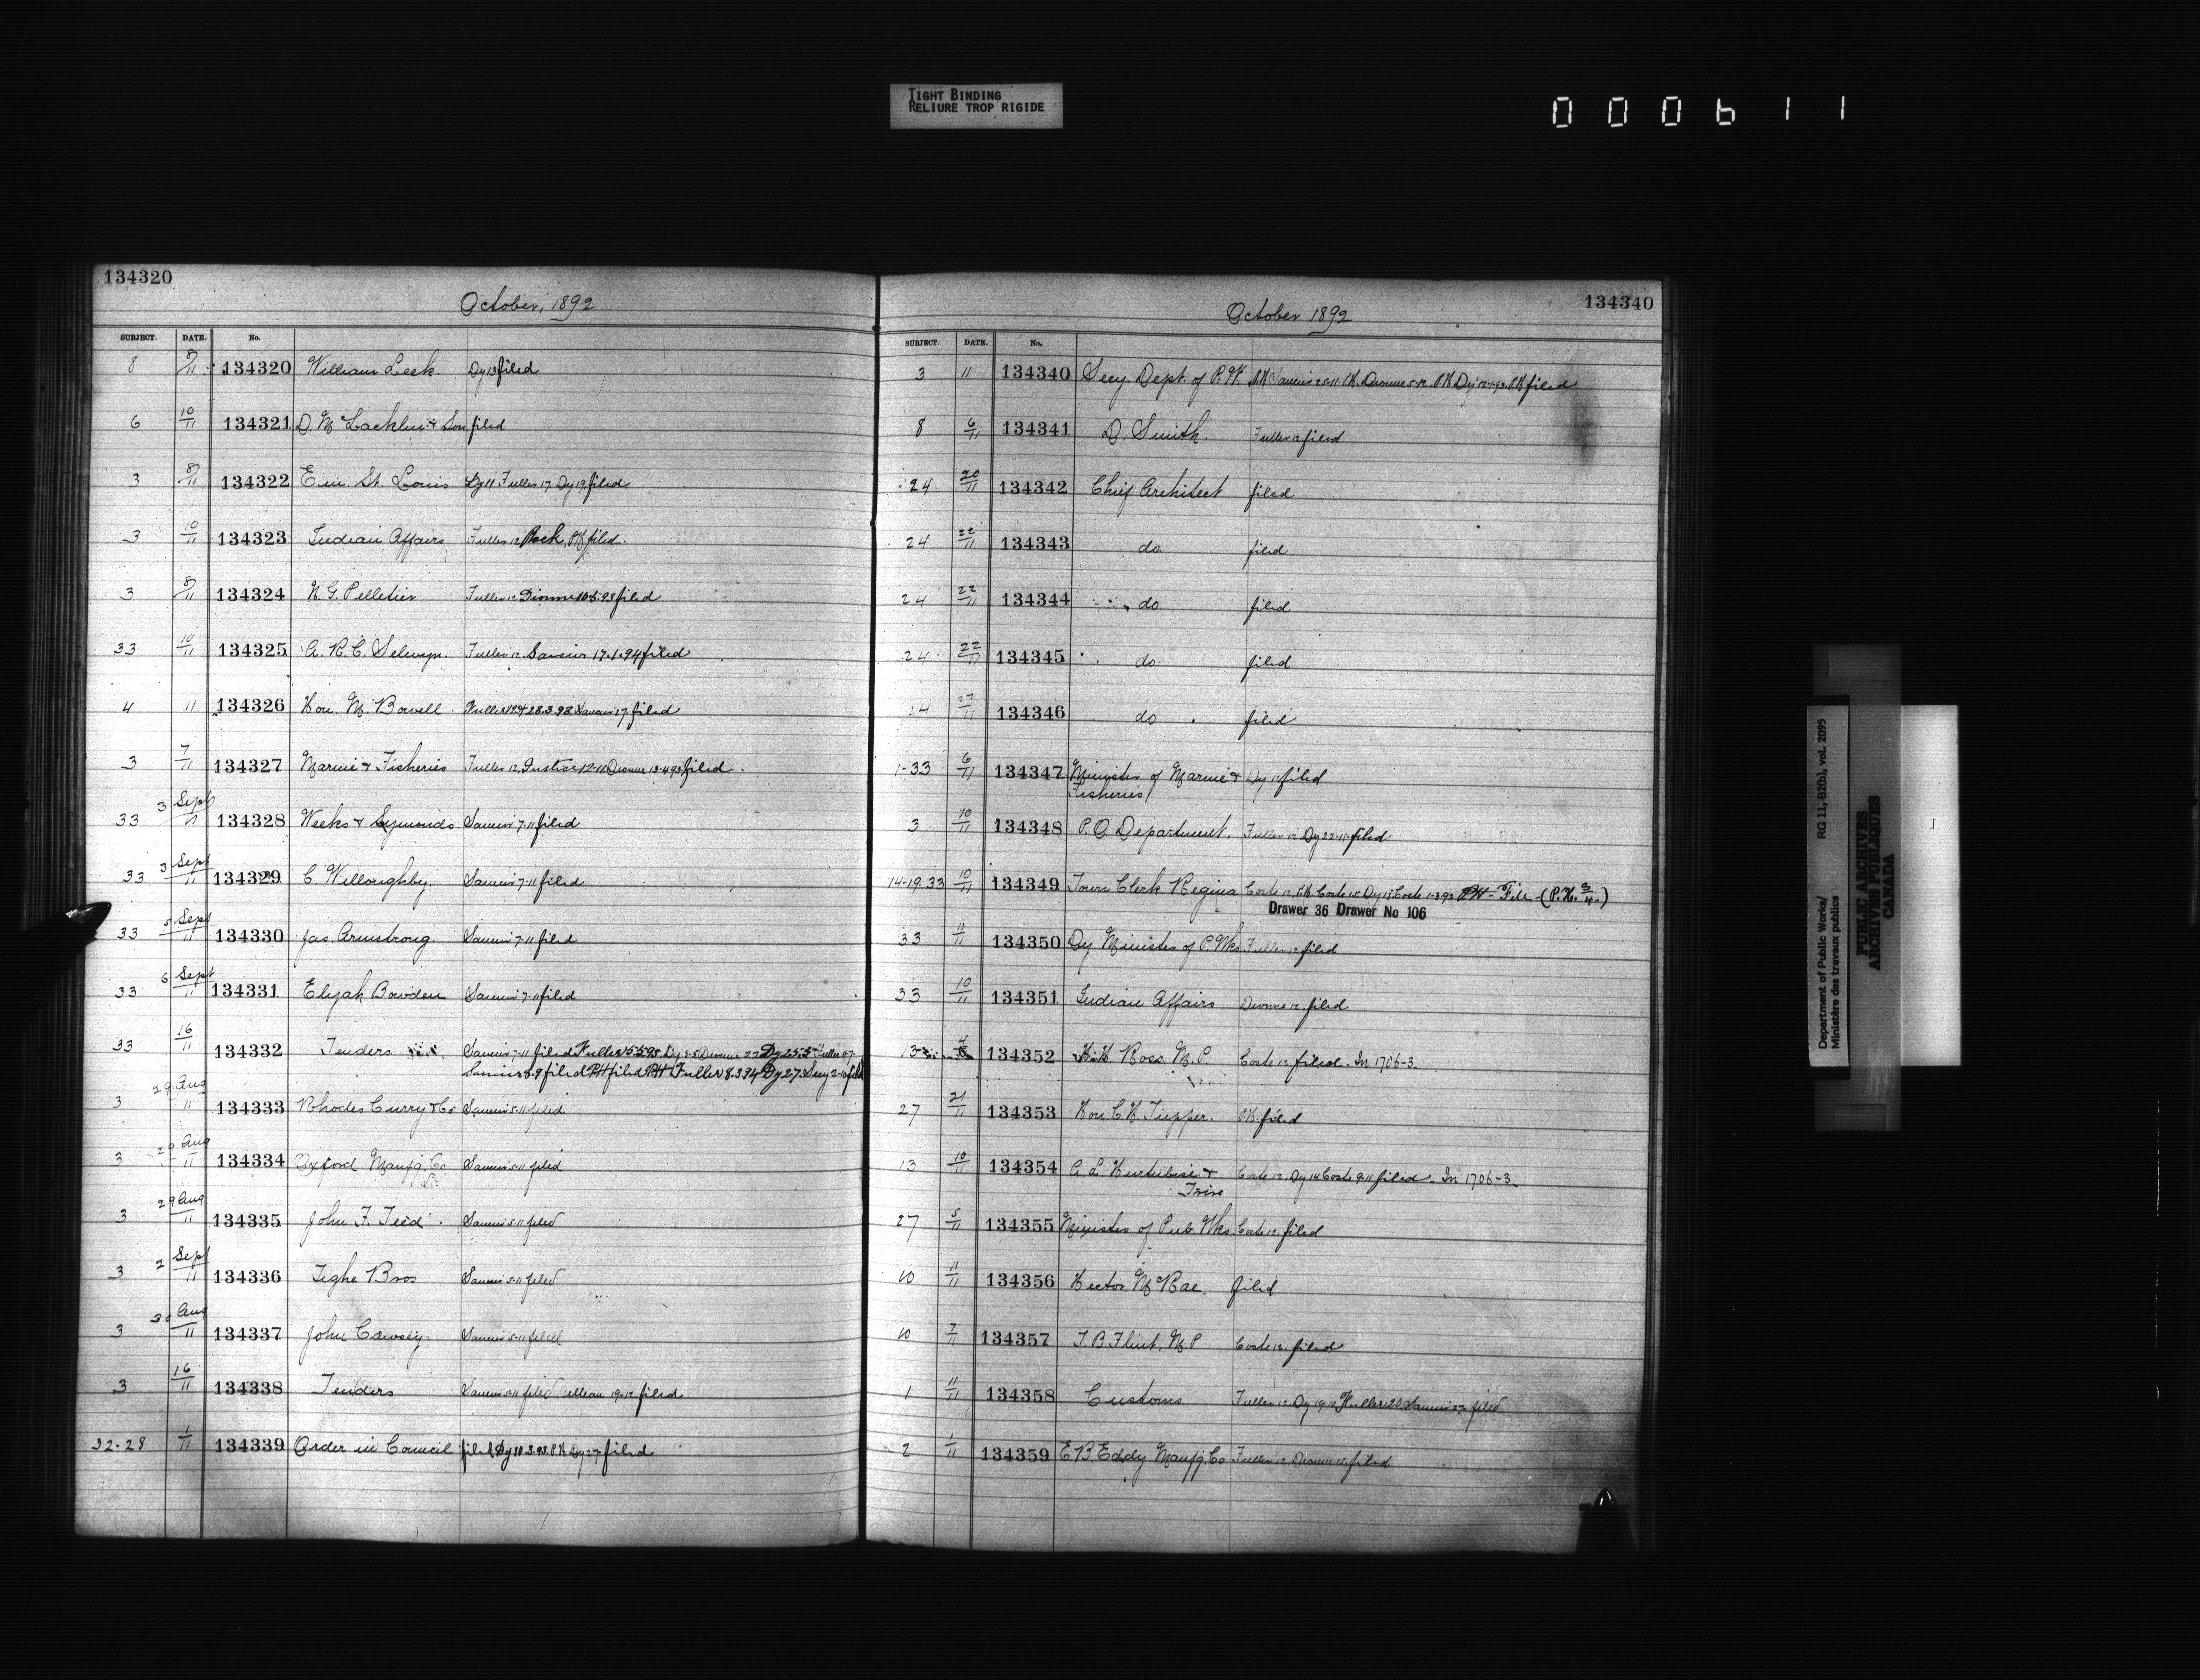 TIGHT BINDING
RELIURE TROP RIGIDE
000611
134320
October, 1892
SUBJECT. DATE. No.
8 8/11 134320 William Leek. Dy 13 filed
6 10/11 134321 D. McLachlin & Son filed
3 8/11 134322 Em St. Louis Dy 11 Fuller 17. Dy 19, filed
3 10/11 134323 Indian Affairs Fuller 12 PH filed.
3 8/11 134324 N. G. Pelletier Fuller 12 Dionne 10.5.93 filed
33 10/11 134325 A. R. C. Selwyn. Fuller 12. 17.1.94 filed
4 11 134326 Hon. M. Bowell 28.3.93. 17. filed
3 7/11 134327 Marine & Fisheries Fuller 12. Justice 12-11 Dionne 13-4-93 filed.
33 3 Sept/11 134328 Weeks & Symonds 7-11 filed
33 3 Sept/11 134329 C. Willoughby. 7-11 filed
33 5 Sept/11 134330 Jas. Armstrong. 7-11 filed
33 6 Sept/11 134331 Elijah Bowden 7-11 filed
33 16/11 134332 Tenders 7-11 filed Fuller Dy 5-5 Dionne 22 Dy 25.5 Fuller
filed PH filed PH Fuller 8.3.94 Dy 27. Secy
3 29 Aug/11 134333 Rhodes Curry & Co 5-11 filed
3 29 Aug/11 134334 Oxford Manfg. Co 5-11 filed
3 29 Aug/11 134335 John F. Teed. 5-11 filed
3 2 Sept/11 134336 Tighe Bros 5-11 filed
3 30 Aug/11 134337 John Cawsey. 5-11 filed
3 16/11 134338 Tenders 5-11 filed 19-12 filed
32-28 1/11 134339 Order in Council filed, Dy 10.3.93. PH Dy 27. filed
134340
October 1892
SUBJECT. DATE. No.
3 11 134340 Secy. Dept. of P. W. PH 25-11. PH. Dionne 5-12. PH Dy 12-1-93. PH filed
8 6/11 134341 D. Smith. Fuller 12 filed
24 20/11 134342 Chief Architect filed
24 22/11 134343 do. filed
24 22/11 134344 do filed
24 22/11 134345 do. filed
24 27/11 134346 do filed
1-33 6/11 134347 Minister of Marine & Dy 12 filed
Fisheries
3 10/11 134348 P.O. Department. Fuller 12 Dy 22-11-filed
14-19.33 10/11 134349 Town Clerk Regina Coste 12. PH. Coste 15. Dy 18 Coste 1-3-93 PH - File (P.H. 3/4.)
Drawer 36 Drawer No 106
33 11/11 134350 Dy. Minister of P. Wks. Fuller 12 filed
33 10/11 134351 Indian Affairs Dionne 12. filed
134352 H. H. Ross. M. P. Coste 12, filed. In 1706-3.
27 21/11 134353 Hon. C. H. Tupper. PH. filed
13 10/11 134354 A. L. Hurtubise & Coste 12. Dy 14 Coste 9-11 filed. In 1706-3.
27 5/11 134355 Minister of Pub. Wks. Coste 12. filed
10 11/11 134356 Hector McRae. filed
10 7/11 134357 T. B. Flint. M. P Coste 12. filed
1 11/11 134358 Customs Fuller 12. Dy 19. Fuller 20 27. filed
2 1/11 134359 E. B. Eddy Manfg. Co Fuller 12. Dionne 15. filed
Department of Public Works/ RG 11, B2(b), vol. 2095
Ministère des travaux publics
PUBLIC ARCHIVES
ARCHIVES PUBLIQUES
CANADA